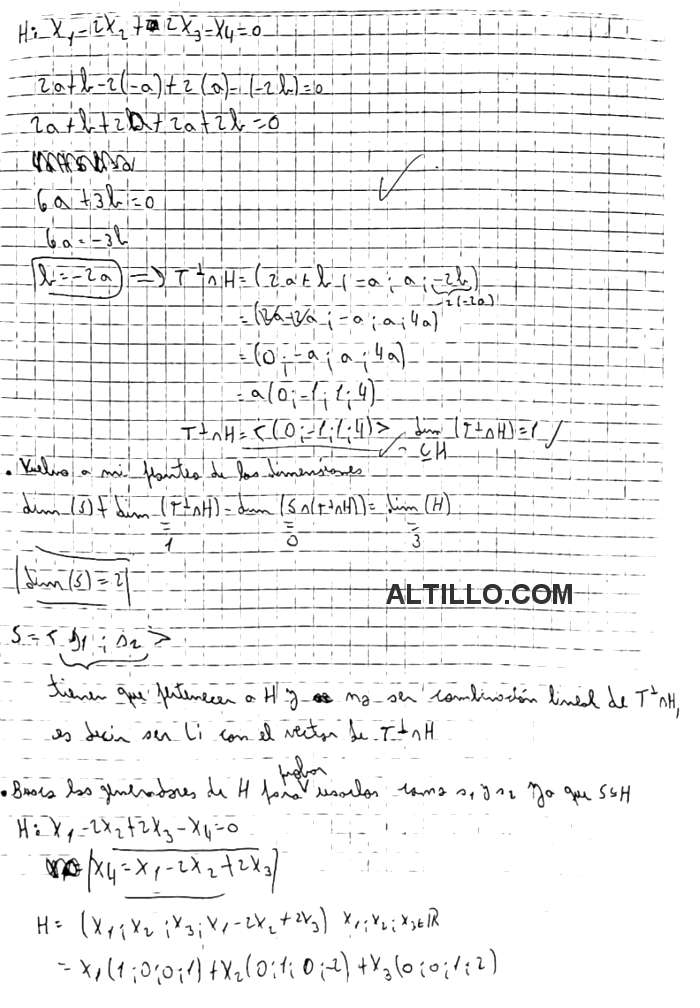 H: x₁-2x₂+2x₃-x₄=0
2a+b-2(-a)+2(a)-(-2b)=0
2a+b+2a+2a+2b=0
6a+3b=0
6a=-3b
b=-2a => T⊥∩H=(2a+b;-a;a;-2b)
-2(-2a)
=(2a-2a;-a;a;4a)
=(0;-a;a;4a)
=a(0;-1;1;4)
T⊥∩H=<(0;-1;1;4)> dim(T⊥∩H)=1
⊆H
• Vuelvo a mi planteo de las dimensiones
dim(S)+dim(T⊥∩H)-dim(S∩(T⊥∩H))=dim(H)
= = =
1 0 3
dim(S)=2
ALTILLO.COM
S=<s₁;s₂>
tienen que pertenecer a H y no ser combinación lineal de T⊥∩H,
es decir ser li con el vector de T⊥∩H
• Busco los generadores de H para probar usarlos como s₁ y s₂ ya que S⊆H
H: x₁-2x₂+2x₃-x₄=0
x₄=x₁-2x₂+2x₃
H=(x₁;x₂;x₃;x₁-2x₂+2x₃) x₁;x₂;x₃∈ℝ
=x₁(1;0;0;1)+x₂(0;1;0;-2)+x₃(0;0;1;2)